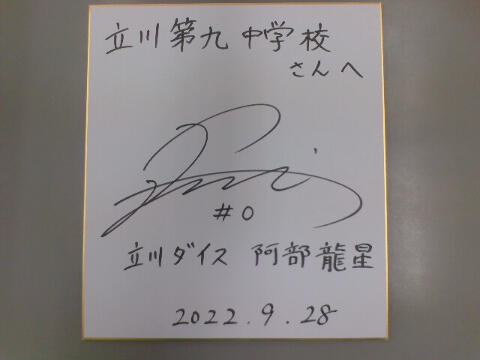 立川第九中学校
さんへ
#0
立川ダイス 阿部龍星
2022.9.28